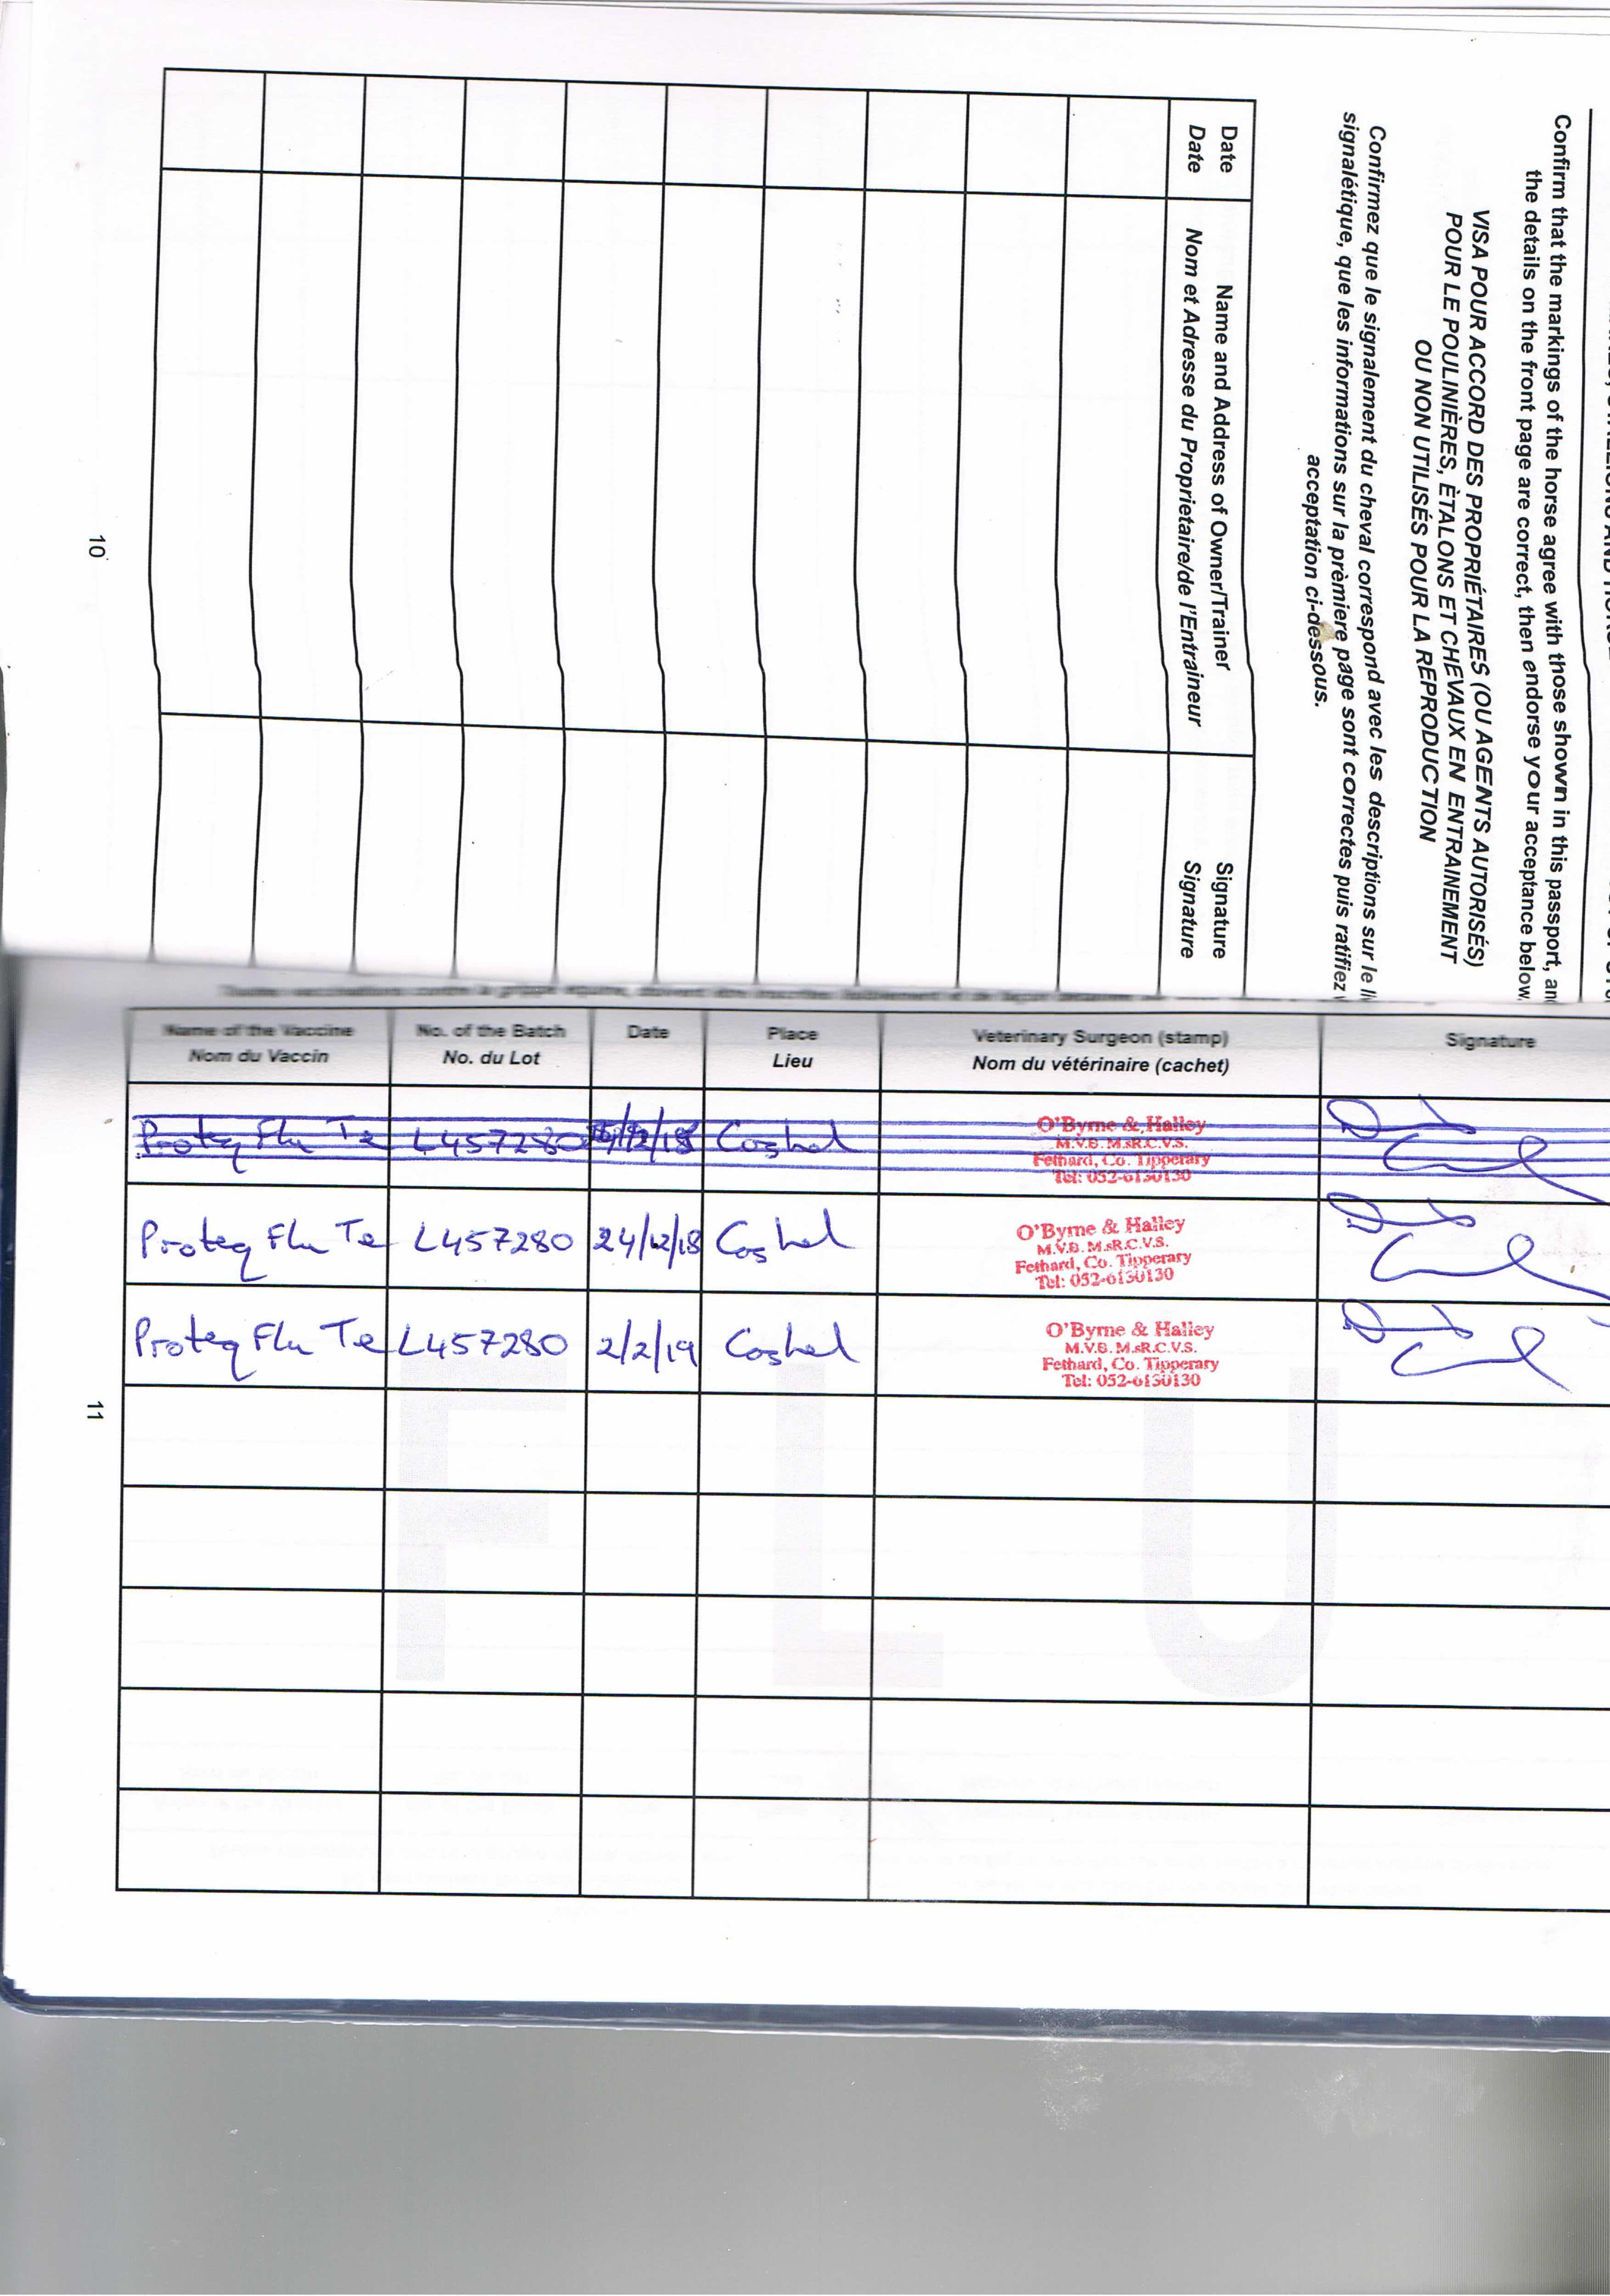 Confirm that the markings of the horse agree with those shown in this passport, an
the details on the front page are correct, then endorse your acceptance below
VISA POUR ACCORD DES PROPRIÉTAIRES (OU AGENTS AUTORISÉS)
POUR LE POULINIÈRES, ÈTALONS ET CHEVAUX EN ENTRAINEMENT
OU NON UTILISÉS POUR LA REPRODUCTION
Confirmez que le signalement du cheval correspond avec les descriptions sur le li
signalétique, que les informations sur la prèmiere page sont correctes puis ratifiez
acceptation ci-dessous.
Date Name and Address of Owner/Trainer Signature
Date Nom et Adresse du Proprietaire/de l'Entraineur Signature
10
Name of the Vaccine No. of the Batch Date Place Veterinary Surgeon (stamp) Signature
Nom du Vaccin No. du Lot Lieu Nom du vétérinaire (cachet)
Proteq Flu Te L457280 Cashel
O'Byrne & Halley
M.V.B. M.sR.C.V.S.
Fethard, Co. Tipperary
Tel: 052-6130130
Proteq Flu Te L457280 24/12/18 Cashel
O'Byrne & Halley
M.V.B. M.sR.C.V.S.
Fethard, Co. Tipperary
Tel: 052-6130130
Proteq Flu Te L457280 2/2/19 Cashel
O'Byrne & Halley
M.V.B. M.sR.C.V.S.
Fethard, Co. Tipperary
Tel: 052-6130130
FLU
11